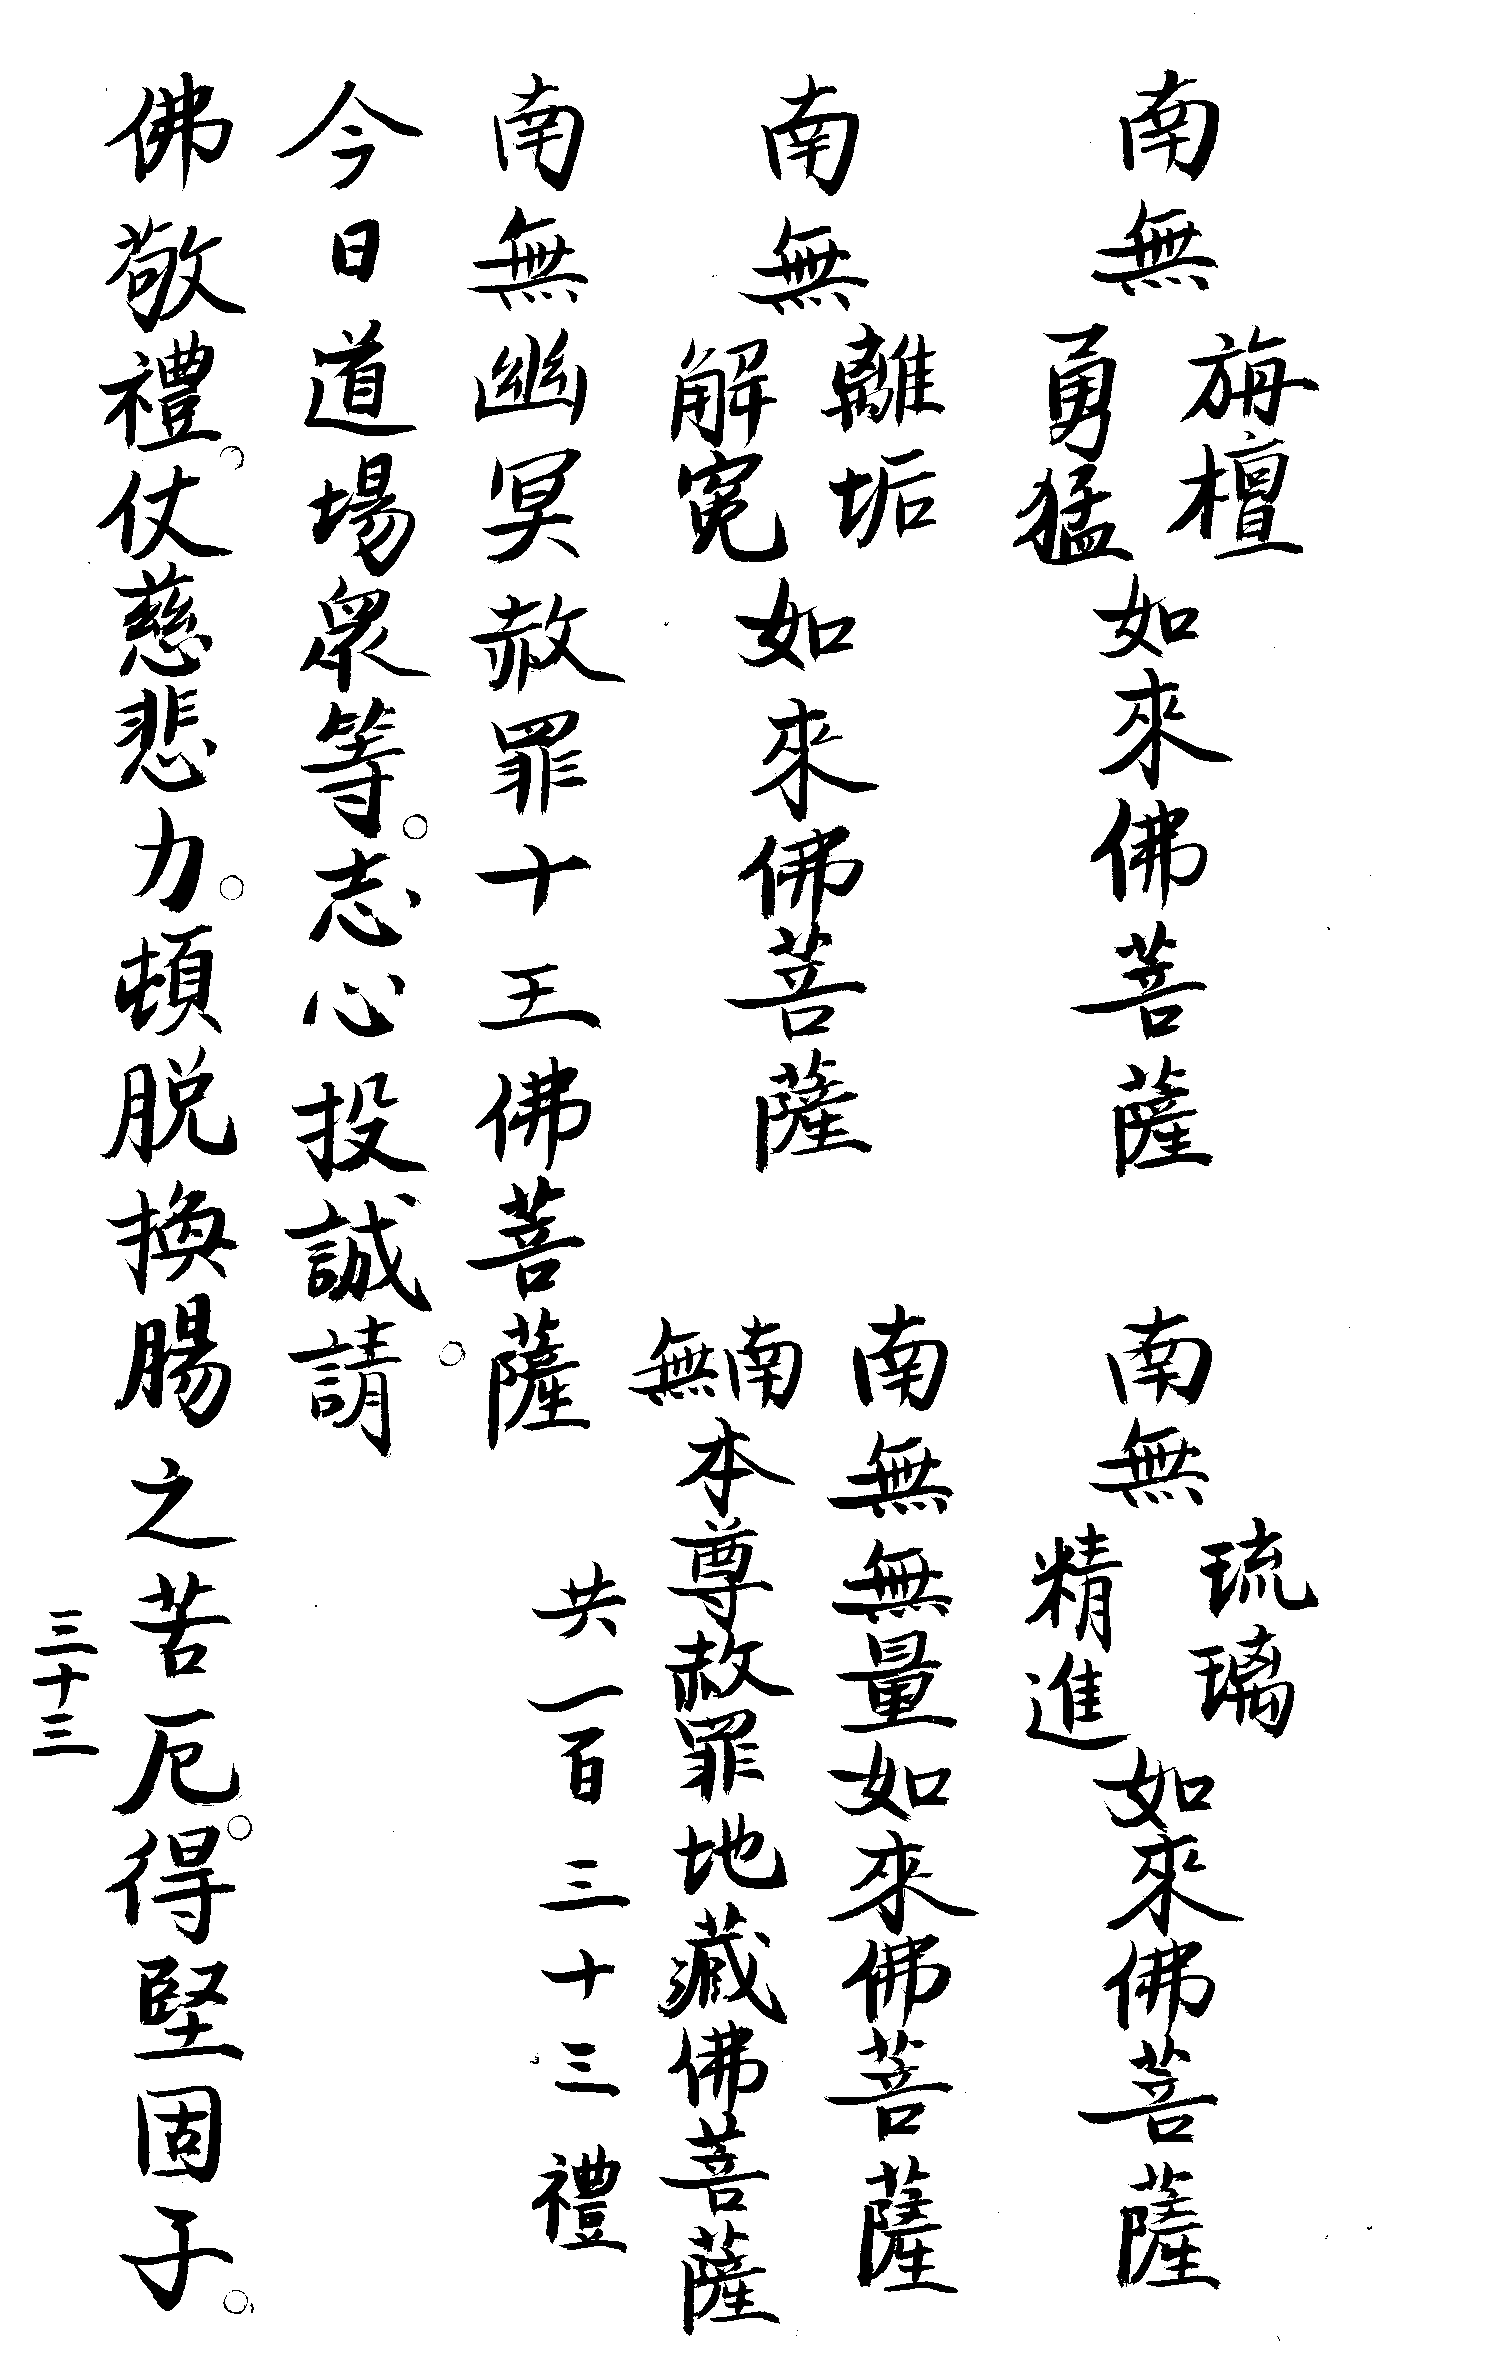 南無旃檀勇猛如來佛菩薩
南無琉璃精進如來佛菩薩
南無離垢解寃如來佛菩薩
南無無量如來佛菩薩
南無本尊赦罪地藏佛菩薩
南無幽冥赦罪十王佛菩薩
共一百三十三禮
今日道場眾等。志心投誠。請
佛敬禮。仗慈悲力。頓脱換腸之苦厄。得堅固子。
三十三